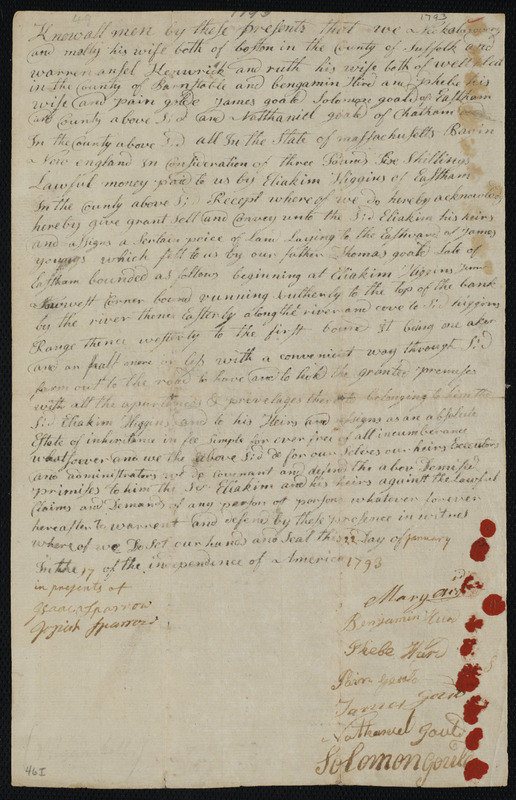 1793
1793
Know all men by these presents that we
and molly his wife both of boston in the County of Suffolk and
warren ansel Kenwrick and ruth his wife both of wellfleet
in the County of Barnstable and benjamin Hird and phebe his
wife and pain goude James goude Solomon goude of Eastham
County above Sd and Natthaniel goude of Chatham
In the County above Sd all In the State of massachusetts
New england in Consideration of three Pounds five Shillings
Lawful money paid to us by Eliakim Higgins of Eastham
In the County above Sd Recept where of we do hereby acknowledg
hereby give grant Sell and Convey unto the Sd Eliakim his heirs
and assigns a Sertain peice of land Laying to the Eastward of James
youngs which fell to us by our father Thomas goude Late of
Eastham bounded as follows beginning at Eliakim Higgins
Corner bound running Sutherly to the top of the bank
by the river thence Easterly along the river and cove to Sd Higgins
Range thence westerly to the first bound It being one aker
and an half more or less with a convenient way through Sd
farm out to the road to have and to hold the granted premises
with all the privelages belonging to him the
Sd Eliakim Higgins and to his Heirs and assigns as an absolute
State of inheritance in fee Simple for ever free of all incumberances
whatsoever and we the above Sd do for our Selves our heirs Executors
and administrators covenant and defend the abov Demised
primises to him the Sd Eliakim and his heirs against the lawful
Claims and Demands of any person or persons whatever forever
hereafter to warrent and defend by these presence in witnes
where of we Do Set our hands and Seal this 22 day of January
In the 17 of the independence of America 1793
in presents of
Isaac Sparrow
Josiah Sparrow
Mary
Benjamin
Phebe Hurd
Pain goude
James
Nathaniel Goud
Solomon goude
46I